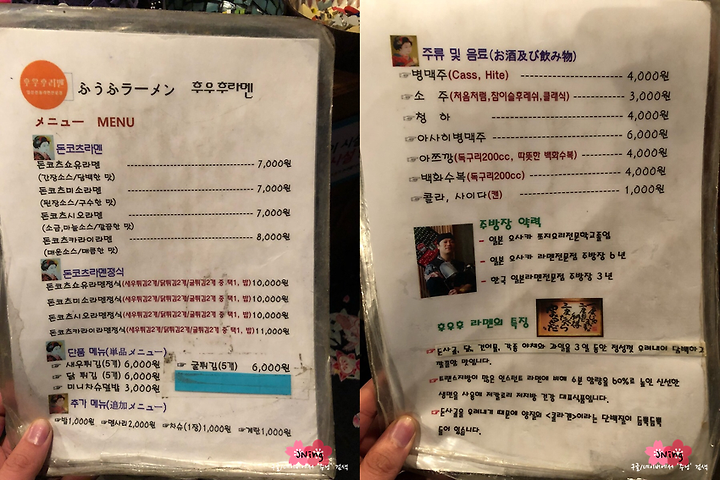 후우후라멘
ふうふラーメン 후우후라멘
メニュー MENU
돈코츠라멘
돈코츠쇼유라멘 7,000원
(간장소스/담백한 맛)
돈코츠미소라멘 7,000원
(된장소스/구수한 맛)
돈코츠시오라멘 7,000원
(소금,마늘소스/깔끔한 맛)
돈코츠카라이라멘 8,000원
(매운소스/매콤한 맛)
돈코츠라멘정식
돈코츠쇼유라멘정식(새우튀김2개/닭튀김2개/굴튀김2개 중 택1, 밥)10,000원
돈코츠미소라멘정식(새우튀김2개/닭튀김2개/굴튀김2개 중 택1, 밥)10,000원
돈코츠시오라멘정식(새우튀김2개/닭튀김2개/굴튀김2개 중 택1, 밥)10,000원
돈코츠카라이라멘정식(새우튀김2개/닭튀김2개/굴튀김2개 중 택1, 밥)11,000원
단품 메뉴(単品メニュー)
☞새우튀김(5개) 6,000원 ☞굴튀김(5개) 6,000원
☞닭 튀김(5개) 6,000원
☞미니차슈덮밥 3,000원
추가 메뉴(追加メニュー)
☞밥1,000원 ☞면사리2,000원 ☞차슈(1장)1,000원 ☞계란1,000원
주류 및 음료(お酒及び飲み物)
☞병맥주(Cass, Hite) 4,000원
☞소 주(처음처럼,참이슬후레쉬,클래식) 3,000원
☞청 하 4,000원
☞아사히병맥주 6,000원
☞아쯔깡(독구리200cc, 따뜻한 백화수복) 4,000원
☞백화수복(독구리200cc) 4,000원
☞콜라, 사이다(캔) 1,000원
주방장 약력
- 일본 오사카 쯔지요리전문학교졸업
- 일본 오사카 라멘전문점 주방장 6년
- 한국 일본라멘전문점 주방장 3년
후우후 라멘의 특징
☞돈사골, 닭, 건어물, 각종 야채와 과일을 3일 동안 정성껏 우려내어 담백하고
깔끔한 맛 입니다.
☞트랜스지방이 많은 인스턴트 라면에 비해 수분 함량을 60%로 높인 신선한
생면을 사용해 저칼로리 저지방 건강 대표식품입니다.
☞돈사골을 우려내기 때문에 양질의 <콜라겐>이라는 단백질이 듬뿍듬뿍
들어 있습니다.
JNing
JNing